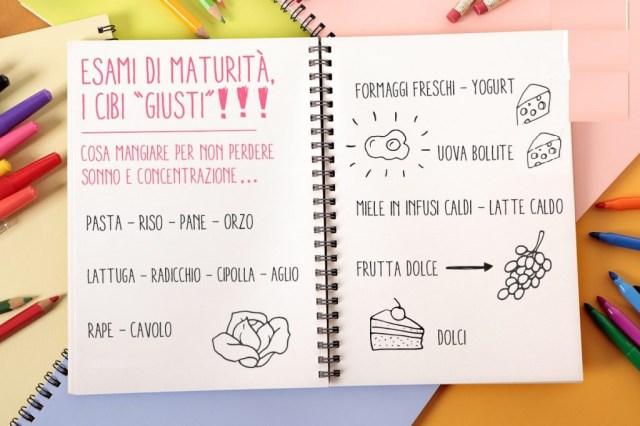 ESAMI DI MATURITÀ,
I CIBI "GIUSTI"!!!
COSA MANGIARE PER NON PERDERE
SONNO E CONCENTRAZIONE...
PASTA - RISO - PANE - ORZO
LATTUGA - RADICCHIO - CIPOLLA - AGLIO
RAPE - CAVOLO
FORMAGGI FRESCHI - YOGURT
UOVA BOLLITE
MIELE IN INFUSI CALDI - LATTE CALDO
FRUTTA DOLCE
DOLCI